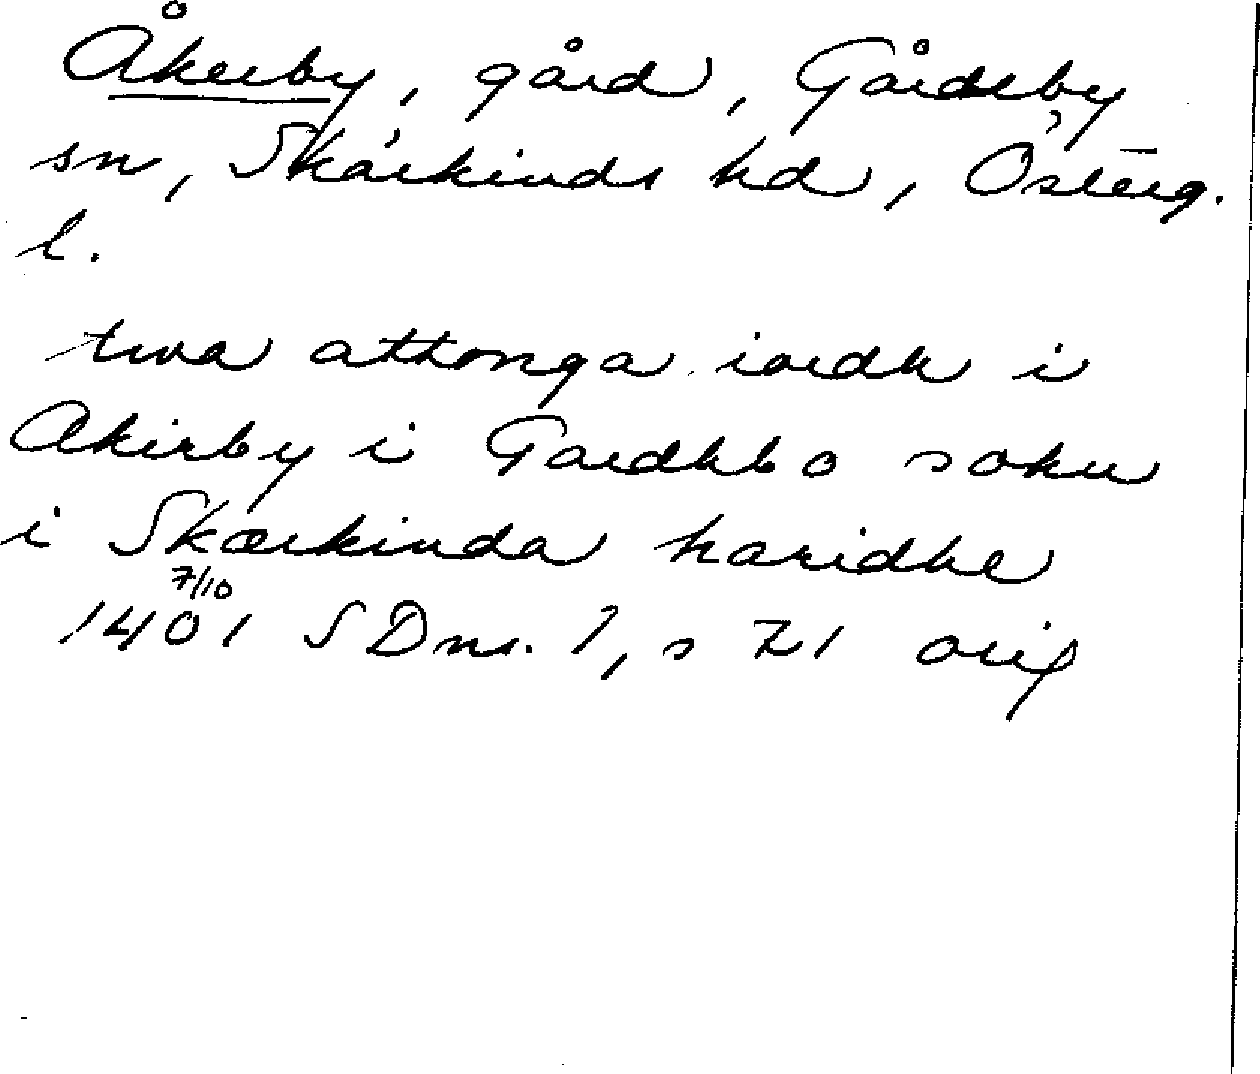 Åkerby, gård, Gårdeby
sn, Skärkinds hd, Österg.
l.
twa attonga iordh i
Akirby i Gardhbo sokn
i Skærkinda haridhe
7/10
1401 SDns. 1, s 71 orig